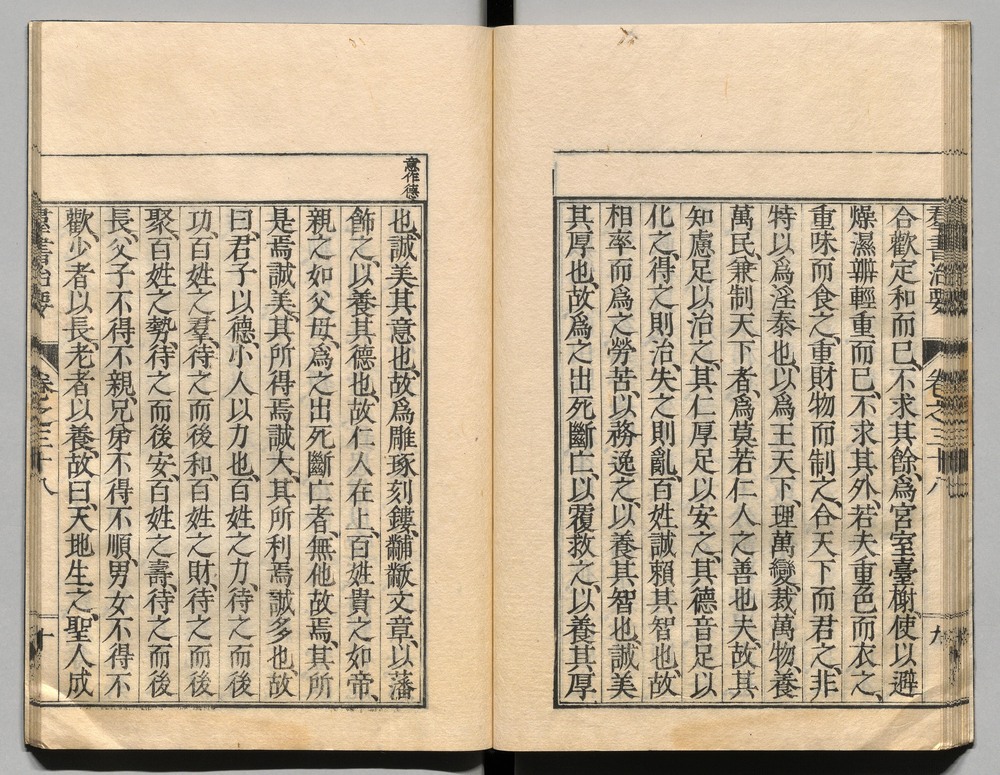 羣書治要 卷之三十八 九
合歡定和而已、不求其餘、爲宮室臺榭使以避
燥濕辨輕重而已、不求其外、若夫重色而衣之、
重味而食之、重財物而制之、合天下而君之、非
特以爲淫泰也、以爲王天下、理萬變、裁萬物、養
萬民、兼制天下者、爲莫若仁人之善也夫、故其
知慮足以治之、其仁厚足以安之、其德音足以
化之、得之則治、失之則亂、百姓誠賴其智也、故
相率而爲之勞苦、以務逸之、以養其智也、誠美
其厚也、故爲之出死斷亡、以覆救之、以養其厚
意作德
也、誠美其意也、故爲雕琢刻鏤、黼黻文章、以藩
飾之、以養其德也、故仁人在上、百姓貴之如帝、
親之如父母、爲之出死斷亡者、無他故焉、其所
是焉誠美、其所得焉誠大、其所利焉誠多也、故
曰、君子以德、小人以力也、百姓之力、待之而後
功、百姓之羣、待之而後和、百姓之財、待之而後
聚、百姓之勢、待之而後安、百姓之壽、待之而後
長、父子不得不親、兄弟不得不順、男女不得不
歡、少者以長、老者以養、故曰、天地生之、聖人成
羣書治要 卷之三十八 十